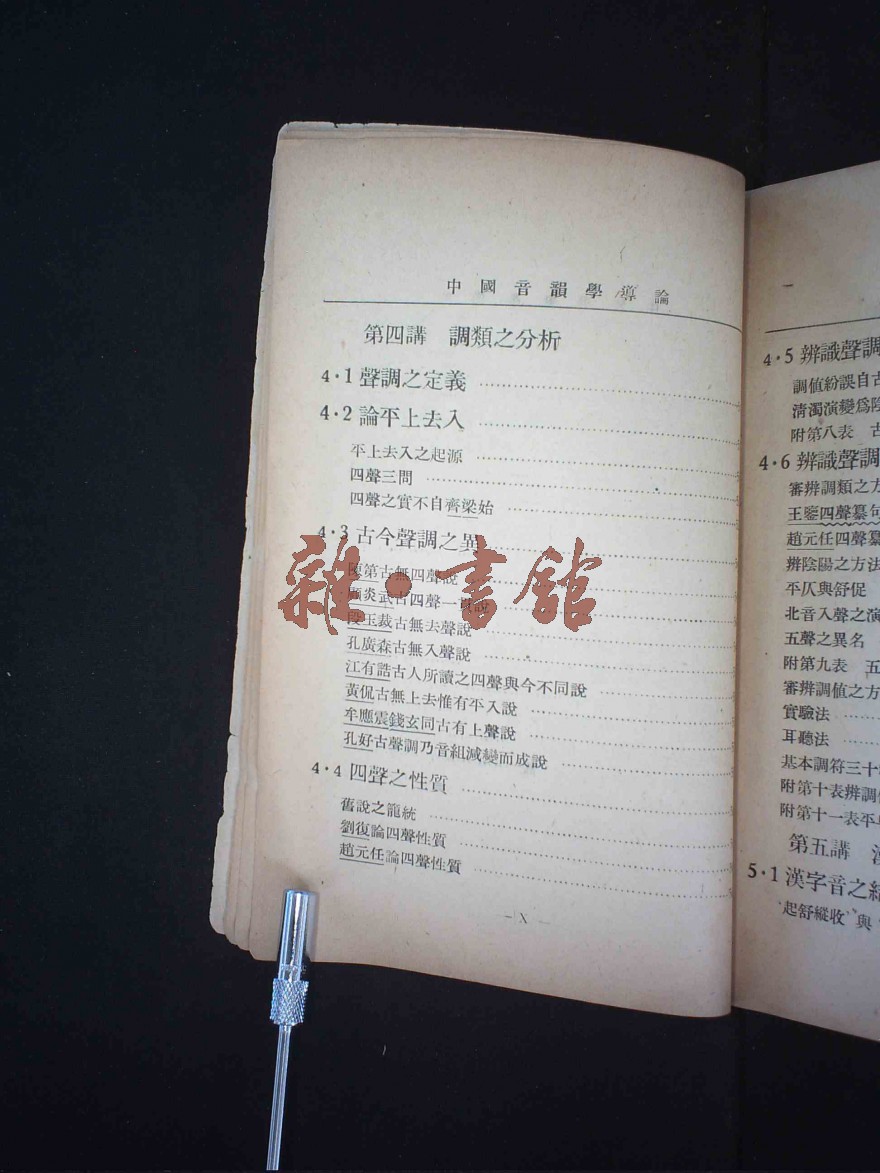 中國音韻學導論
第四講 調類之分析
4·1 聲調之定義
4·2 論平上去入
平上去入之起源
四聲三問
四聲之實不自齊梁始
4·3 古今聲調之異
陳第古無四聲說
顧炎武古四聲一貫說
段玉裁古無去聲說
孔廣森古無入聲說
江有誥古人所讀之四聲與今不同說
黃侃古無上去惟有平入說
牟應震錢玄同古有上聲說
孔好古聲調乃音組減變而成說
4·4 四聲之性質
舊說之籠統
劉復論四聲性質
趙元任論四聲性質
— X —
雜·書館
4·5 辨識聲調
調值紛誤自古
清濁演變爲陰
附第八表 古
4·6 辨識聲調
審辨調類之方
王鑒四聲纂句
趙元任四聲纂
辨陰陽之方法
平仄與舒促
北音入聲之演
五聲之異名
附第九表 五
審辨調值之方
實驗法
耳聽法
基本調符三十
附第十表辨調
附第十一表平
第五講
5·1 漢字音之結
起舒縱收 與